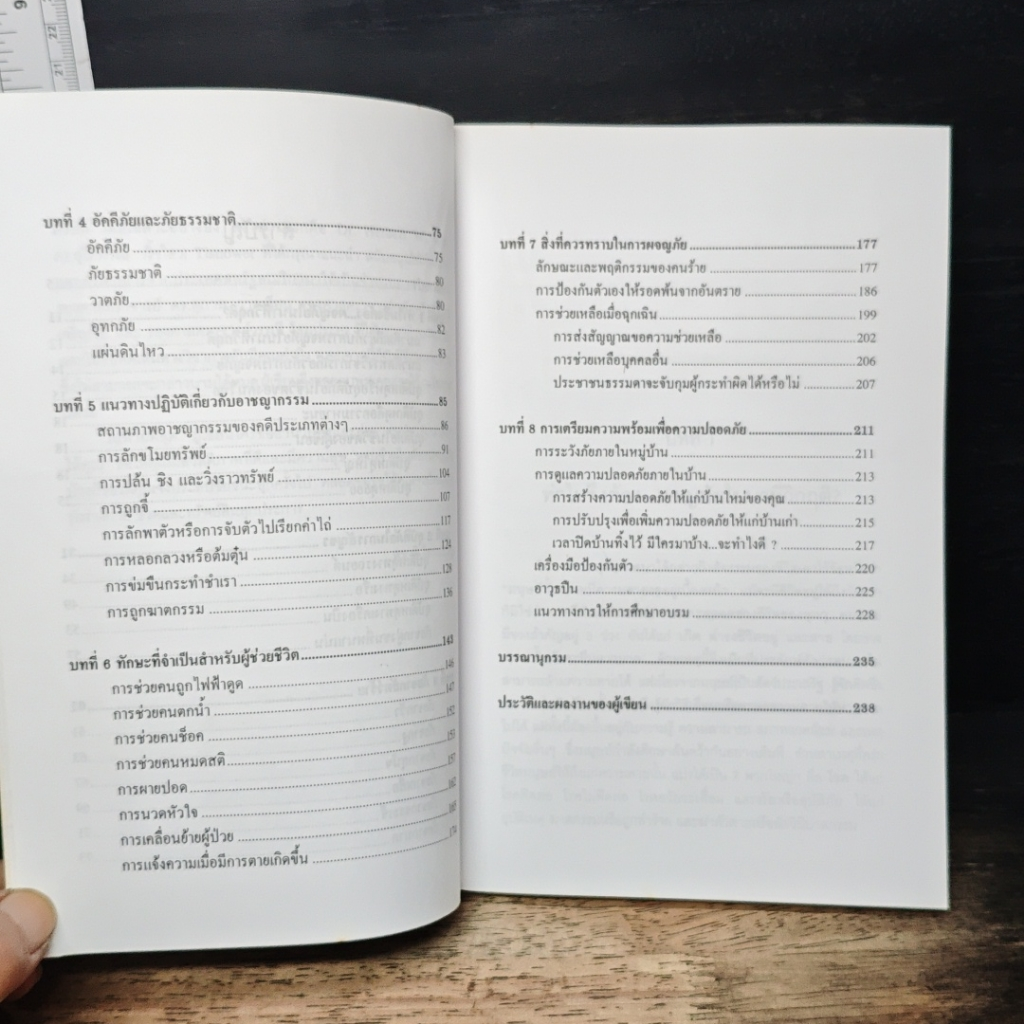 9
22
21
บทที่ 4 อัคคีภัยและภัยธรรมชาติ 75
อัคคีภัย 75
ภัยธรรมชาติ 80
วาตภัย 80
อุทกภัย 82
แผ่นดินไหว 83
บทที่ 5 แนวทางปฏิบัติเกี่ยวกับอาชญากรรม 85
สถานภาพอาชญากรรมของคดีประเภทต่างๆ 86
การลักขโมยทรัพย์ 91
การปล้น ชิง และวิ่งราวทรัพย์ 104
การถูกจี้ 107
การลักพาตัวหรือการจับตัวไปเรียกค่าไถ่ 117
การหลอกลวงหรือต้มตุ๋น 124
การข่มขืนกระทำชำเรา 128
การถูกฆาตกรรม 136
บทที่ 6 ทักษะที่จำเป็นสำหรับผู้ช่วยชีวิต 143
การช่วยคนถูกไฟฟ้าดูด 146
การช่วยคนตกน้ำ 147
การช่วยคนช็อค 152
การช่วยคนหมดสติ 153
การผายปอด 157
การนวดหัวใจ 162
การเคลื่อนย้ายผู้ป่วย 165
การแจ้งความเมื่อมีการตายเกิดขึ้น 174
บทที่ 7 สิ่งที่ควรทราบในการผจญภัย 177
ลักษณะและพฤติกรรมของคนร้าย 177
การป้องกันตัวเองให้รอดพ้นจากอันตราย 186
การช่วยเหลือเมื่อฉุกเฉิน 199
การส่งสัญญาณขอความช่วยเหลือ 202
การช่วยเหลือบุคคลอื่น 206
ประชาชนธรรมดาจะจับกุมผู้กระทำผิดได้หรือไม่ 207
บทที่ 8 การเตรียมความพร้อมเพื่อความปลอดภัย 211
การระวังภัยภายในหมู่บ้าน 211
การดูแลความปลอดภัยภายในบ้าน 213
การสร้างความปลอดภัยให้แก่บ้านใหม่ของคุณ 213
การปรับปรุงเพื่อเพิ่มความปลอดภัยให้แก่บ้านเก่า 215
เวลาปิดบ้านทิ้งไว้ มีใครมาบ้าง...จะทำไงดี ? 217
เครื่องมือป้องกันตัว 220
อาวุธปืน 225
แนวทางการให้การศึกษาอบรม 228
บรรณานุกรม 235
ประวัติและผลงานของผู้เขียน 238